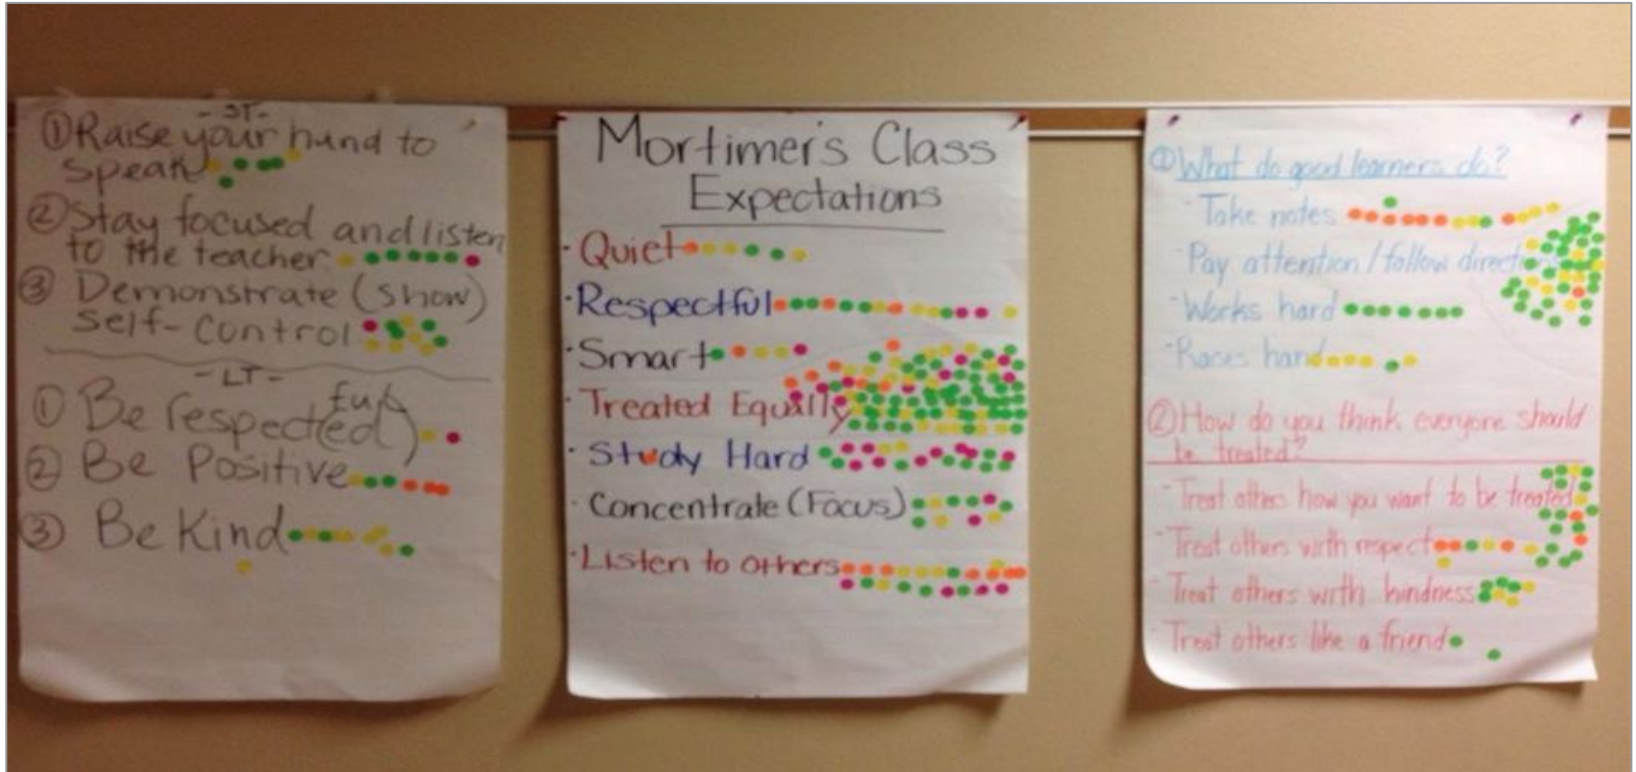 - ST -
①Raise your hand to
speak
②Stay focused and listen
to the teacher
③ Demonstrate (show)
self-control
- LT -
ful
① Be respected)
② Be Positive
③ Be Kind
Mortimer's Class
Expectations
· Quiet
· Respectful
· Smart
· Treated Equally
· Study Hard
· Concentrate (Focus)
· Listen to others
①What do good learners do?
- Take notes
- Pay attention / follow direct
- Works hard
- Races hand
②How do you think everyone should
be treated?
- Treat others how you want to be treated
- Treat others with respect
- Treat others with kindness
- Treat others like a friend